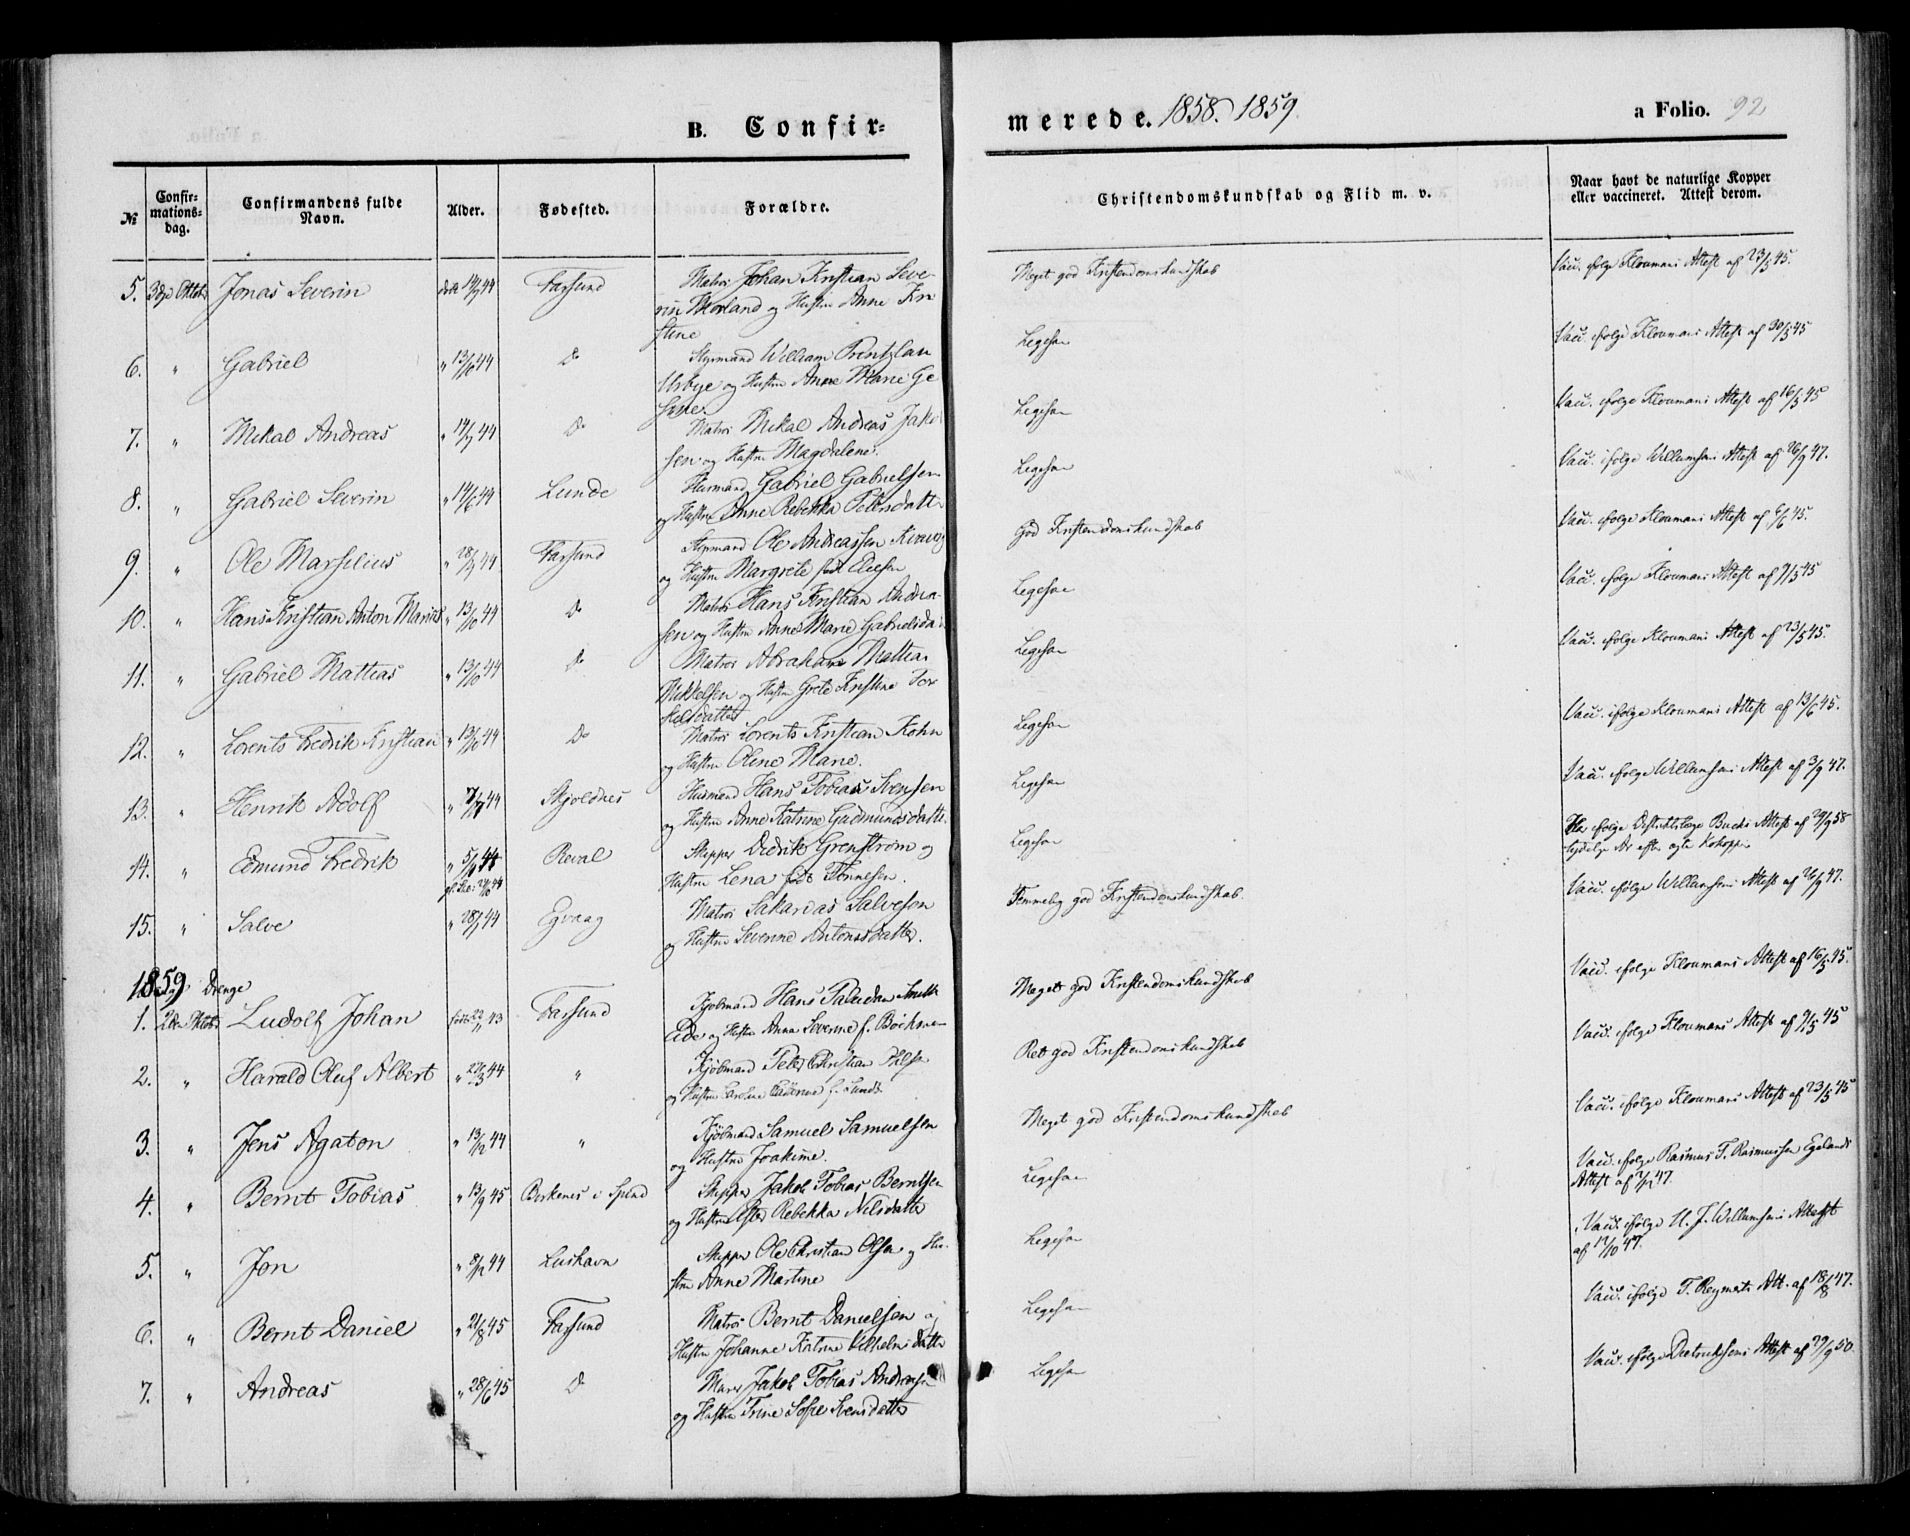 B. Confir-
merede. 1858. 1859
a Folio. 92
№
Confir-
mations-
dag.
Confirmandens fulde
Navn.
Alder.
Fødested.
Forældre.
Christendomskundskab og Flid m. v.
Naar havt de naturlige Kopper
eller vaccineret. Attest derom.
5. 3die Oktob. Jonas Severin født 14/7 44 Farsund Matros Johan Kristian Seve-
rin Morland og Hustru Anne Kri
stine
Meget god Kristendomskundskab
Vacc. ifølge Kloumans Attest af 23/5 45.
6. " Gabriel " 13/6 44 Do Styrmand William
Urbye og Hustru Anne Marie Ge
sine.
Ligesaa
Vacc. ifølge Kloumans Attest af 30/5 45
7. " Mikal Andreas " 14/7 44 Do Matros Mikal Andreas Jakob
sen og Hustru Magdalene.
Ligesaa
Vacc. ifølge Kloumans Attest af 16/5 45
8. " Gabriel Severin " 14/6 44 Lunde Husmand Gabriel Gabrielsen
og Hustru Anne Rebekka Petersdatter
Ligesaa
Vacc. ifølge Willumsens Attest af 26/9 47.
9. " Ole Marsilius " 28/9 44 Farsund Styrmand Ole Andreassen
og Hustru Margrete født Olesen
God Kristendomskundskab
Vacc. ifølge Kloumans Attest af 6/6 45.
10. " Hans Kristian Anton Marius " 13/10 44 Do Matros Hans Kristian Andrea-
sen og Hustru Anne Marie Gabrielsda
Ligesaa
Vacc. ifølge Kloumans Attest af 9/5 45
11. " Gabriel Mattias " 13/10 44 Do Matros Abraham Mattias
Mikkelsen og Hustru Grete Kristine Tor
kelsdatter
Ligesaa
Vacc. ifølge Kloumans Attest af 23/5 45.
12. " Lorents Fredrik Kristian " 13/10 44 Do Matros Lorents Kristian Kohn
og Hustru Oline Marie.
Ligesaa
Vacc. ifølge Kloumans Attest af 13/6 45.
13. " Henrik Adolf " 7/7 44 Skjoldnes Husmand Hans Tobias Svensen
og Hustru Anne Katrine Gudmundsdatter
Ligesaa
Vacc. ifølge Willumsens Attest af 3/9 47.
14. " Edmund Fredrik " 5/9 44 Reval Skipper Didrik Grenstrøm og
Hustru Lena født Tønnesen.
Ligesaa
ifølge Distriktslæge Buchs Attest af 29/9 58
tydelige Ar efter ægte Kokopper
15. " Salve " 28/9 44 Egvaag Matros Sakarias Salvesen
og Hustru Severine Antonsdatter.
Temmelig god Kristendomskundskab.
Vacc. ifølge Willumsens Attest af 26/9 47.
1859 Drenge
1. 2den Oktob. Ludolf Johan født 22/11 43 Farsund Kjøbmand Hans Paludan Smith
Eide og Hustru Anna Severine f. Bøckman
Meget god Kristendomskundskab
Vacc. ifølge Kloumans Attest af 16/5 45.
2. " Harald Oluf Albert " 27/3 44 " Kjøbmand Peter Christian
og Hustru f. Lund.
Ret god Kristendomskundskab
Vacc. ifølge Kloumans Attest af 9/5 45
3. " Jens Agaton " 13/12 44 " Kjøbmand Samuel Samuelsen
og Hustru Joakime.
Meget god Kristendomskundskab
Vacc. ifølge Kloumans Attest af 23/5 45
4. " Bernt Tobias " 13/9 45 Birkenes i Spind Skipper Jakob Tobias Berntsen
og Hustru Ester Rebekka Nilsdatter
Ligesaa
Vacc. ifølge Rasmus T. Rasmussen Egelands
Attest af 47.
5. " Jon " 8/12 44 Lushavn Skipper Ole Christian Olsen og Hu-
stru Anne Martine
Ligesaa
Vacc. ifølge H. J. Willumsens Attest
af 17/10 47.
6. " Bernt Daniel " 21/8 45 Farsund Matros Bernt Danielsen og
Hustru Johanne Katrine Vilhelmsdatter
Ligesaa
Vacc. ifølge T. Reymerts Att. af 18/8 47.
7. " Andreas " 28/6 45 Do Jakob Tobias Andreasen
og Hustru Trine Sofie
Ligesaa
Vacc. ifølge Dietrichsens Attest af 29/9 50.